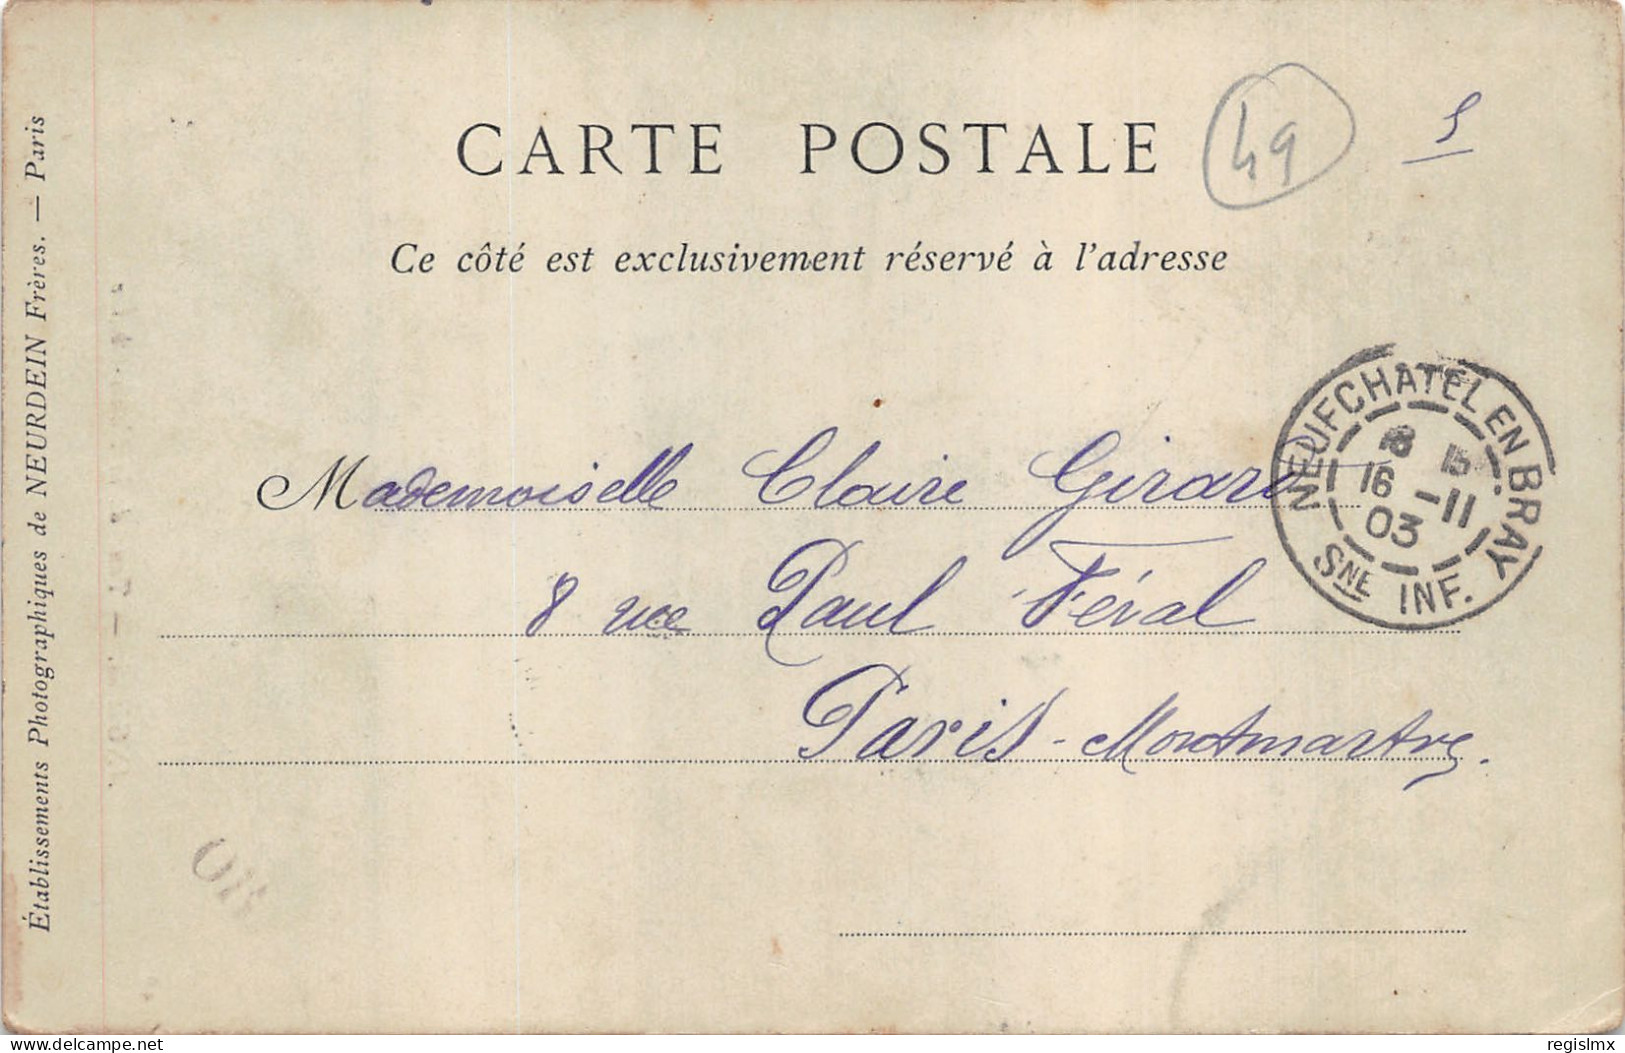 CARTE POSTALE
49
5
Ce côté est exclusivement réservé à l'adresse
Établissements Photographiques de NEURDEIN Frères. — Paris
NEUFCHATEL EN BRAY
8 15
16 -11
03
SNE INF.
Mademoiselle Claire Girard
8 rue Paul Féval
Paris-Montmartre.
OR
www.delcampe.net
regislmx